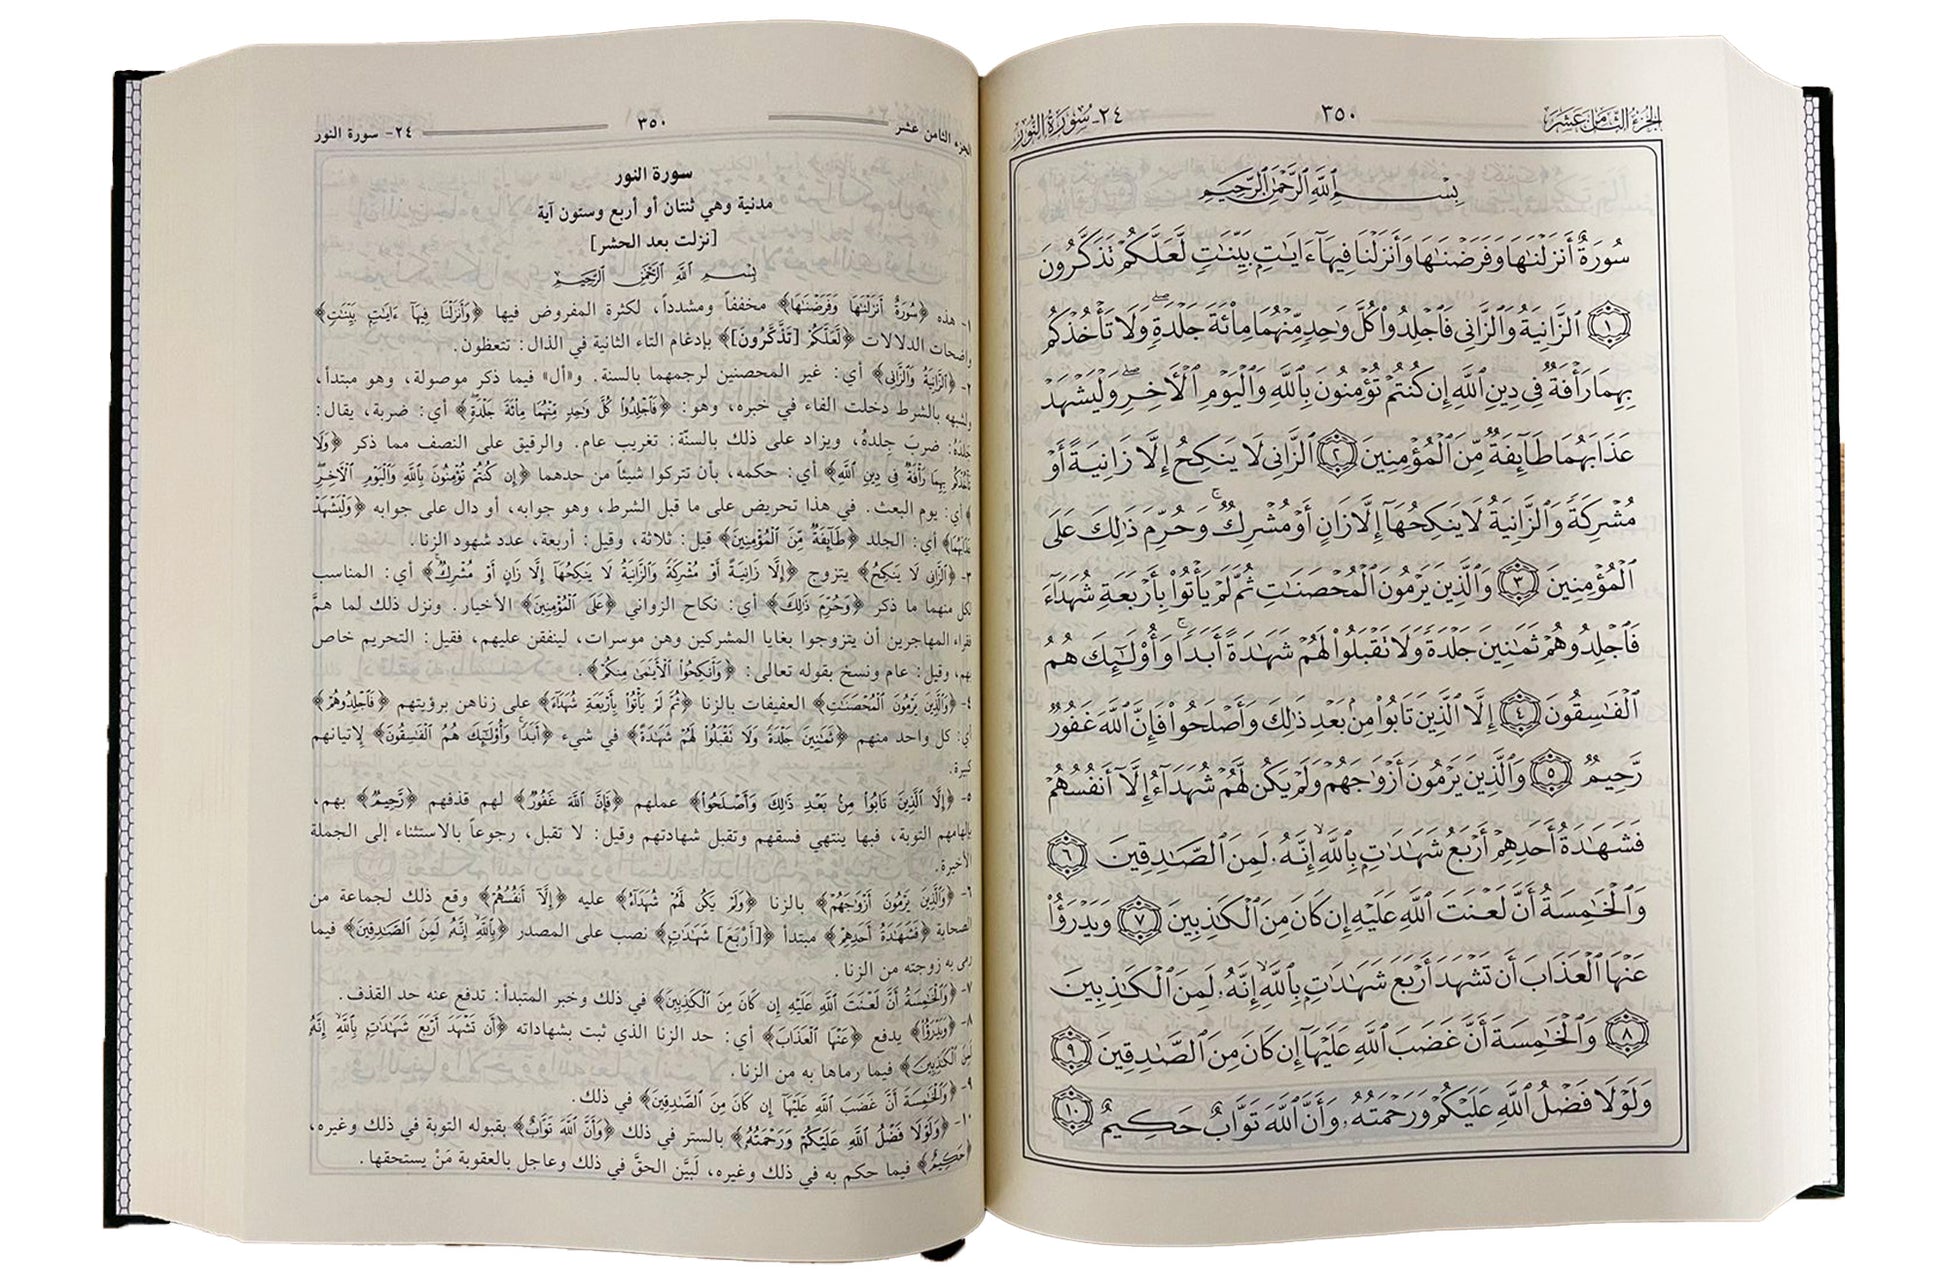 الجزء الثامن عشر
٣٥٠
٢٤- سورة النور
بِسْمِ ٱللَّهِ ٱلرَّحْمَٰنِ ٱلرَّحِيمِ
سُورَةٌ أَنزَلْنَٰهَا وَفَرَضْنَٰهَا وَأَنزَلْنَا فِيهَآ ءَايَٰتٍۭ بَيِّنَٰتٍ لَّعَلَّكُمْ تَذَكَّرُونَ
١ ٱلزَّانِيَةُ وَٱلزَّانِى فَٱجْلِدُوا۟ كُلَّ وَٰحِدٍ مِّنْهُمَا مِا۟ئَةَ جَلْدَةٍ ۖ وَلَا تَأْخُذْكُم
بِهِمَا رَأْفَةٌ فِى دِينِ ٱللَّهِ إِن كُنتُمْ تُؤْمِنُونَ بِٱللَّهِ وَٱلْيَوْمِ ٱلْءَاخِرِ ۖ وَلْيَشْهَدْ
عَذَابَهُمَا طَآئِفَةٌ مِّنَ ٱلْمُؤْمِنِينَ ٢ ٱلزَّانِى لَا يَنكِحُ إِلَّا زَانِيَةً أَوْ
مُشْرِكَةً وَٱلزَّانِيَةُ لَا يَنكِحُهَآ إِلَّا زَانٍ أَوْ مُشْرِكٌ ۚ وَحُرِّمَ ذَٰلِكَ عَلَى
ٱلْمُؤْمِنِينَ ٣ وَٱلَّذِينَ يَرْمُونَ ٱلْمُحْصَنَٰتِ ثُمَّ لَمْ يَأْتُوا۟ بِأَرْبَعَةِ شُهَدَآءَ
فَٱجْلِدُوهُمْ ثَمَٰنِينَ جَلْدَةً وَلَا تَقْبَلُوا۟ لَهُمْ شَهَٰدَةً أَبَدًا ۚ وَأُو۟لَٰٓئِكَ هُمُ
ٱلْفَٰسِقُونَ ٤ إِلَّا ٱلَّذِينَ تَابُوا۟ مِنۢ بَعْدِ ذَٰلِكَ وَأَصْلَحُوا۟ فَإِنَّ ٱللَّهَ غَفُورٌ
رَّحِيمٌ ٥ وَٱلَّذِينَ يَرْمُونَ أَزْوَٰجَهُمْ وَلَمْ يَكُن لَّهُمْ شُهَدَآءُ إِلَّآ أَنفُسُهُمْ
فَشَهَٰدَةُ أَحَدِهِمْ أَرْبَعُ شَهَٰدَٰتٍۭ بِٱللَّهِ ۙ إِنَّهُۥ لَمِنَ ٱلصَّٰدِقِينَ ٦
وَٱلْخَٰمِسَةُ أَنَّ لَعْنَتَ ٱللَّهِ عَلَيْهِ إِن كَانَ مِنَ ٱلْكَٰذِبِينَ ٧ وَيَدْرَؤُا۟
عَنْهَا ٱلْعَذَابَ أَن تَشْهَدَ أَرْبَعَ شَهَٰدَٰتٍۭ بِٱللَّهِ ۙ إِنَّهُۥ لَمِنَ ٱلْكَٰذِبِينَ
٨ وَٱلْخَٰمِسَةَ أَنَّ غَضَبَ ٱللَّهِ عَلَيْهَآ إِن كَانَ مِنَ ٱلصَّٰدِقِينَ ٩
وَلَوْلَا فَضْلُ ٱللَّهِ عَلَيْكُمْ وَرَحْمَتُهُۥ وَأَنَّ ٱللَّهَ تَوَّابٌ حَكِيمٌ ١٠
الجزء الثامن عشر
٣٥٠
٢٤- سورة النور
سورة النور
مدنية وهي ثنتان أو أربع وستون آية
[نزلت بعد الحشر]
بسم الله الرحمن الرحيم
١- هذه ﴿سُورَةٌ أَنزَلْنَٰهَا وَفَرَضْنَٰهَا﴾ مخففاً ومشدداً، لكثرة المفروض فيها ﴿وَأَنزَلْنَا فِيهَآ ءَايَٰتٍۭ بَيِّنَٰتٍ﴾
واضحات الدلالات ﴿لَّعَلَّكُمْ [تَذَّكَّرُونَ]﴾ بإدغام التاء الثانية في الذال: تتعظون.
٢- ﴿ٱلزَّانِيَةُ وَٱلزَّانِى﴾ أي: غير المحصنين لرجمهما بالسنة. و«أل» فيما ذكر موصولة، وهو مبتدأ،
ولشبهه بالشرط دخلت الفاء في خبره، وهو: ﴿فَٱجْلِدُوا۟ كُلَّ وَٰحِدٍ مِّنْهُمَا مِا۟ئَةَ جَلْدَةٍ﴾ أي: ضربة، يقال:
جَلَدَهُ: ضربَ جِلدهُ، ويزاد على ذلك بالسنّة: تغريب عام. والرقيق على النصف مما ذكر ﴿وَلَا
تَأْخُذْكُم بِهِمَا رَأْفَةٌ فِى دِينِ ٱللَّهِ﴾ أي: حكمه، بأن تتركوا شيئاً من حدهما ﴿إِن كُنتُمْ تُؤْمِنُونَ بِٱللَّهِ وَٱلْيَوْمِ ٱلْءَاخِرِ
﴾ أي: يوم البعث. في هذا تحريض على ما قبل الشرط، وهو جوابه، أو دال على جوابه ﴿وَلْيَشْهَدْ
عَذَابَهُمَا﴾ أي: الجلد ﴿طَآئِفَةٌ مِّنَ ٱلْمُؤْمِنِينَ﴾ قيل: ثلاثة، وقيل: أربعة، عدد شهود الزنا.
٣- ﴿ٱلزَّانِى لَا يَنكِحُ﴾ يتزوج ﴿إِلَّا زَانِيَةً أَوْ مُشْرِكَةً وَٱلزَّانِيَةُ لَا يَنكِحُهَآ إِلَّا زَانٍ أَوْ مُشْرِكٌ﴾ أي: المناسب
لكل منهما ما ذكر ﴿وَحُرِّمَ ذَٰلِكَ﴾ أي: نكاح الزواني ﴿عَلَى ٱلْمُؤْمِنِينَ﴾ الأخيار. ونزل ذلك لما همَّ
فقراء المهاجرين أن يتزوجوا بغايا المشركين وهن موسرات، لينفقن عليهم، فقيل: التحريم خاص
بهم، وقيل: عام ونسخ بقوله تعالى: ﴿وَأَنكِحُوا۟ ٱلْأَيَٰمَىٰ مِنكُمْ﴾.
٤- ﴿وَٱلَّذِينَ يَرْمُونَ ٱلْمُحْصَنَٰتِ﴾ العفيفات بالزنا ﴿ثُمَّ لَمْ يَأْتُوا۟ بِأَرْبَعَةِ شُهَدَآءَ﴾ على زناهن برؤيتهم ﴿فَٱجْلِدُوهُمْ﴾
أي: كل واحد منهم ﴿ثَمَٰنِينَ جَلْدَةً وَلَا تَقْبَلُوا۟ لَهُمْ شَهَٰدَةً﴾ في شيء ﴿أَبَدًا وَأُو۟لَٰٓئِكَ هُمُ ٱلْفَٰسِقُونَ﴾ لإتيانهم
كبيرة.
٥- ﴿إِلَّا ٱلَّذِينَ تَابُوا۟ مِنۢ بَعْدِ ذَٰلِكَ وَأَصْلَحُوا۟﴾ عملهم ﴿فَإِنَّ ٱللَّهَ غَفُورٌ﴾ لهم قذفهم ﴿رَّحِيمٌ﴾ بهم،
بإلهامهم التوبة، فبها ينتهي فسقهم وتقبل شهادتهم وقيل: لا تقبل، رجوعاً بالاستثناء إلى الجملة
الأخيرة.
٦- ﴿وَٱلَّذِينَ يَرْمُونَ أَزْوَٰجَهُمْ﴾ بالزنا ﴿وَلَمْ يَكُن لَّهُمْ شُهَدَآءُ﴾ عليه ﴿إِلَّآ أَنفُسُهُمْ﴾ وقع ذلك لجماعة من
الصحابة ﴿فَشَهَٰدَةُ أَحَدِهِمْ﴾ مبتدأ ﴿[أَرْبَعَ] شَهَٰدَٰتٍ﴾ نصب على المصدر ﴿بِٱللَّهِ إِنَّهُۥ لَمِنَ ٱلصَّٰدِقِينَ﴾ فيما
رمى به زوجته من الزنا.
٧- ﴿وَٱلْخَٰمِسَةُ أَنَّ لَعْنَتَ ٱللَّهِ عَلَيْهِ إِن كَانَ مِنَ ٱلْكَٰذِبِينَ﴾ في ذلك وخبر المبتدأ: تدفع عنه حد القذف.
٨- ﴿وَيَدْرَؤُا۟﴾ يدفع ﴿عَنْهَا ٱلْعَذَابَ﴾ أي: حد الزنا الذي ثبت بشهاداته ﴿أَن تَشْهَدَ أَرْبَعَ شَهَٰدَٰتٍۭ بِٱللَّهِ إِنَّهُۥ
لَمِنَ ٱلْكَٰذِبِينَ﴾ فيما رماها به من الزنا.
٩- ﴿وَٱلْخَٰمِسَةَ أَنَّ غَضَبَ ٱللَّهِ عَلَيْهَآ إِن كَانَ مِنَ ٱلصَّٰدِقِينَ﴾ في ذلك.
١٠- ﴿وَلَوْلَا فَضْلُ ٱللَّهِ عَلَيْكُمْ وَرَحْمَتُهُۥ﴾ بالستر في ذلك ﴿وَأَنَّ ٱللَّهَ تَوَّابٌ﴾ بقبوله التوبة في ذلك وغيره،
﴿حَكِيمٌ﴾ فيما حكم به في ذلك وغيره، لَبيَّن الحقَّ في ذلك وعاجل بالعقوبة مَنْ يستحقها.